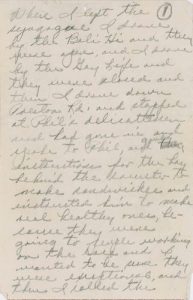 When I left the ①
synagogue I drove
by the Bali Hi and they
were open, and I drove
by the Gay Life and
they were closed and
then I drove down
Preston Rd. and stopped
at Phil's delicatessen
and had gone in and
spoke to Phil, and
instructions for the guy
behind the counter to
make sandwiches and
instructed him to make
real healthy ones, be-
cause they were
going to people working
on the case and I
wanted to be sure they
were exceptional, and
then I called the